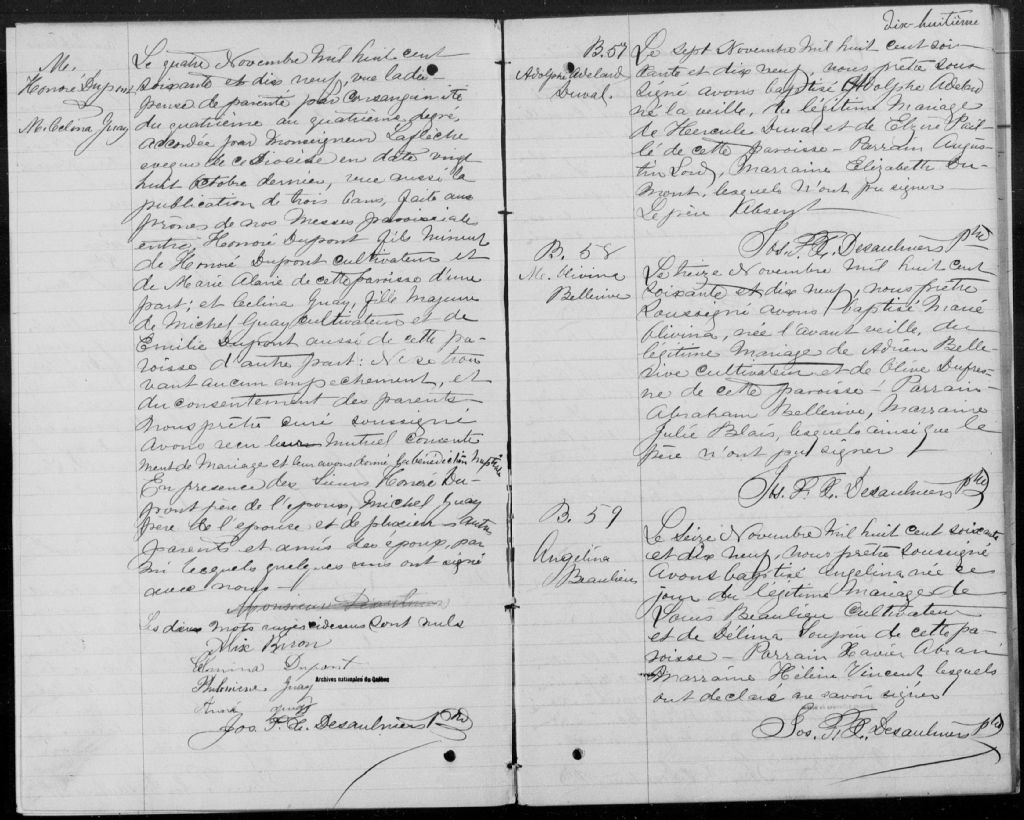 M.
Honoré Dupont
M. Celina Guay
Le quatre Novembre Mil huit cent
soixante et dix neuf, vue la dis-
pense de parenté par consanguinité
du quatrième au quatrième degré,
accordée par Monseigneur Laflèche
eveque de ce diosise en date vingt
huit Octobre dernier, vue aussi la
publication de trois bans, faite aux
prônes de nos Messes paroissiale
entre, Honoré Dupont fils Mineur
de Honoré Dupont cultivateur et
de Marie Alarie de cette paroisse d'une
part; et Celina Guay, fille Majeure
de Michel Guay cultivateur et de
Emilie Dupont aussi de cette pa-
roisse d'autre part: Ne se trou
vant aucun empechement, et
du consentement des parents
nous prêtre curé soussigné
avons recu leur mutuel consente
ment de Mariage et leur avons donné la bénédiction nuptiale
En presence des Sieurs Honoré Du-
pont père de l'epoux, Michel Guay
père de l'epouse et de plusieurs autres
parents et amis des epoux, par
mi lesquels quelques uns ont signé
avec nous
Les deux mots rayés cidessus sont nuls
Alix Biron
Dupont
Philomène Guay
André Guay
Archives nationales du Québec
Jos. F. X. Desaulniers Ptre
dix-huitième
B. 57
Adolphe Adelard
Duval.
Le Sept Novembre Mil huit cent soi-
xante et dix neuf nous prêtre sous
signé avons baptisé Adolphe Adelard
né la veille, du légitime Mariage
de Hercule Duval et de Elzire Pail-
lé de cette paroisse - Parrain Augus-
tin Lord, Marraine Elizabeth Du-
mont, lesquels n'ont pu signer
Le père Absent
Jos. F. X. Desaulniers Ptre
B. 58
M. Olivina
Bellerive
Le treize Novembre Mil huit cent
soixante et dix neuf, nous prêtre
soussigné avons baptisé Marie
Olivina, née l'avant veille, du
légitime Mariage de Adrien Belle-
rive cultivateur et de Olive Dufres-
ne de cette paroisse - Parrain
Abraham Bellerive, Marraine
Julie Blais, lesquels ainsi que le
père n'ont pu signer
Jos. F. X. Desaulniers Ptre
B. 59
Angélina
Beaulieu
Le Seize Novembre Mil huit cent soixante
et dix neuf, nous prêtre soussigné
avons baptisé Angelina née ce
jour du légitime Mariage de
Louis Beaulieu Cultivateur
et de Délima Loupin de cette pa-
roisse - Parrain Xavier
Marraine Hélène Vincent lesquels
ont declaré ne savoir signer
Jos. F. X. Desaulniers Ptre